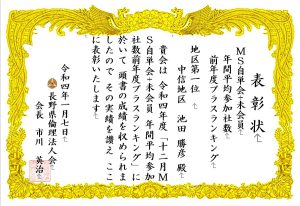 表彰状
MS自単会+未会員
年間平均参加社数
前年度プラスランキング
地区第一位
中信地区 池田 勝彦 殿
貴会は 令和四年度「十二月M
S自単会+未会員 年間平均参加
社数前年度プラスランキング」に
於いて 頭書の成績を収められま
したので その実績を讃え ここ
に表彰いたします
令和四年一月七日
長野県倫理法人会
会長 市川 英治